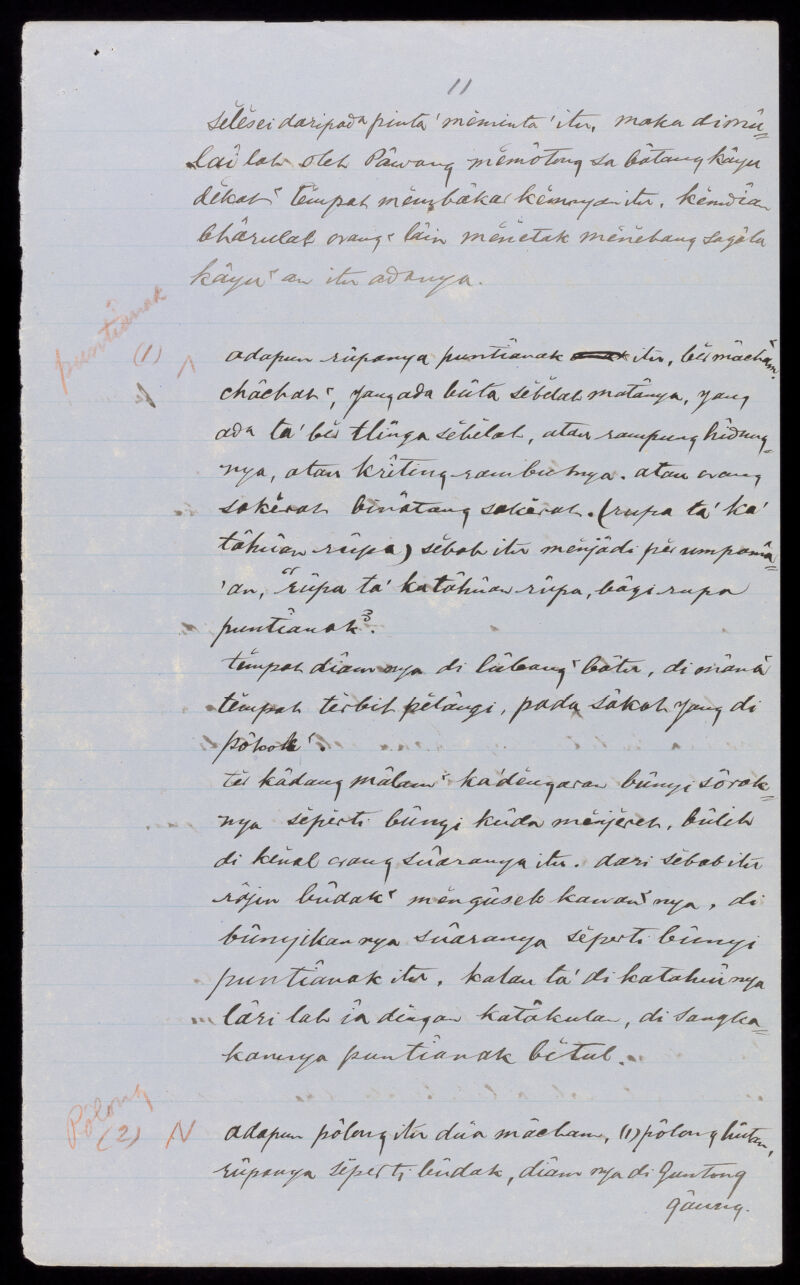 11
sĕlĕsei daripada pinta' mĕminta' itu, maka dimŭ=
lâi lah oleh Pâwang mĕmôtong sa bâtang kâyu
dĕkat² tĕmpat mĕmbâkar kĕmnyan itu, kĕmdîan
bhârulah orang² lâin mĕnĕtak mĕnĕbang sagâla
kâyu² an itu adanya.
puntîanak
(1)
adapun rûpanya puntîanak itu, bĕr mâcham
châchat², yang ada bûta sĕbĕlah matânya, yang
ada ta' bĕr tlînga sĕbĕlah, atau rampung hîdung=
nya, atau krîting rambutnya. atau orang
sakĕrat binâtang sakĕrat. (rupa ta' ka'
tâhûan rûpa) sĕbab itu mĕnjâdi pĕr umpamâ=
'an, "rûpa ta' katâhûan rûpa, bâgi rupa
puntîanak".
tĕmpat dîam nya di lûbang² bâtu, di mânâ
tĕmpat tĕrbit pĕlângi, pada sâkat yang di
pôkok².
tĕr kâdang mâlam² ka'dĕngaran bûnyi sôrak=
nya sĕpĕrti bûnyi kûda mĕnjĕreh, bûlih
di kĕnal orang sûaranya itu. dari sĕbab itu
râjin bûdak² mĕngûsek kawan² nya, di
bûnyikan nya sûaranya sĕpĕrti bûnyi
puntîanak itu, kalau ta' di katahûi nya
lâri lah îa dĕngan katâkutan, di sangka=
kannya puntîanak bĕtul.
Pôlong
(2)
adapun pôlong itu dûa mâcham, (1) pôlong hûtan,
rûpanya sĕpĕrti bûdak, dîam nya di guntong
gâung.